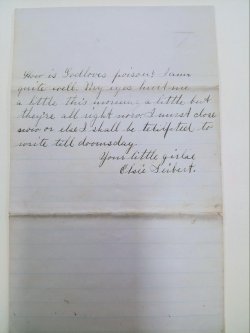 How is Godloves poison? I am
quite well. My eyes hurt me
a little this morning a little but
they're all right now. I must close
now or else I shall be tempted to
write till doomsday.
Your little girlie
Elsie Seibert.